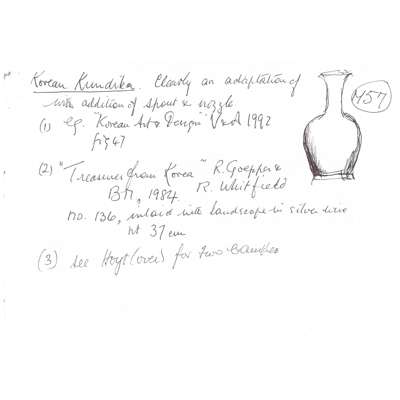 Korean Kundika. Clearly an adaptation of
with addition of spout & nozzle
(1) eg. "Korean Art & Design" V&A 1992
fig 47
(2) "Treasures from Korea" R. Goepper &
BM, 1984 R. Whitfield
no. 136, inlaid with landscape in silver wire
ht 37 cm
(3) see Hoyt (over) for two examples
457